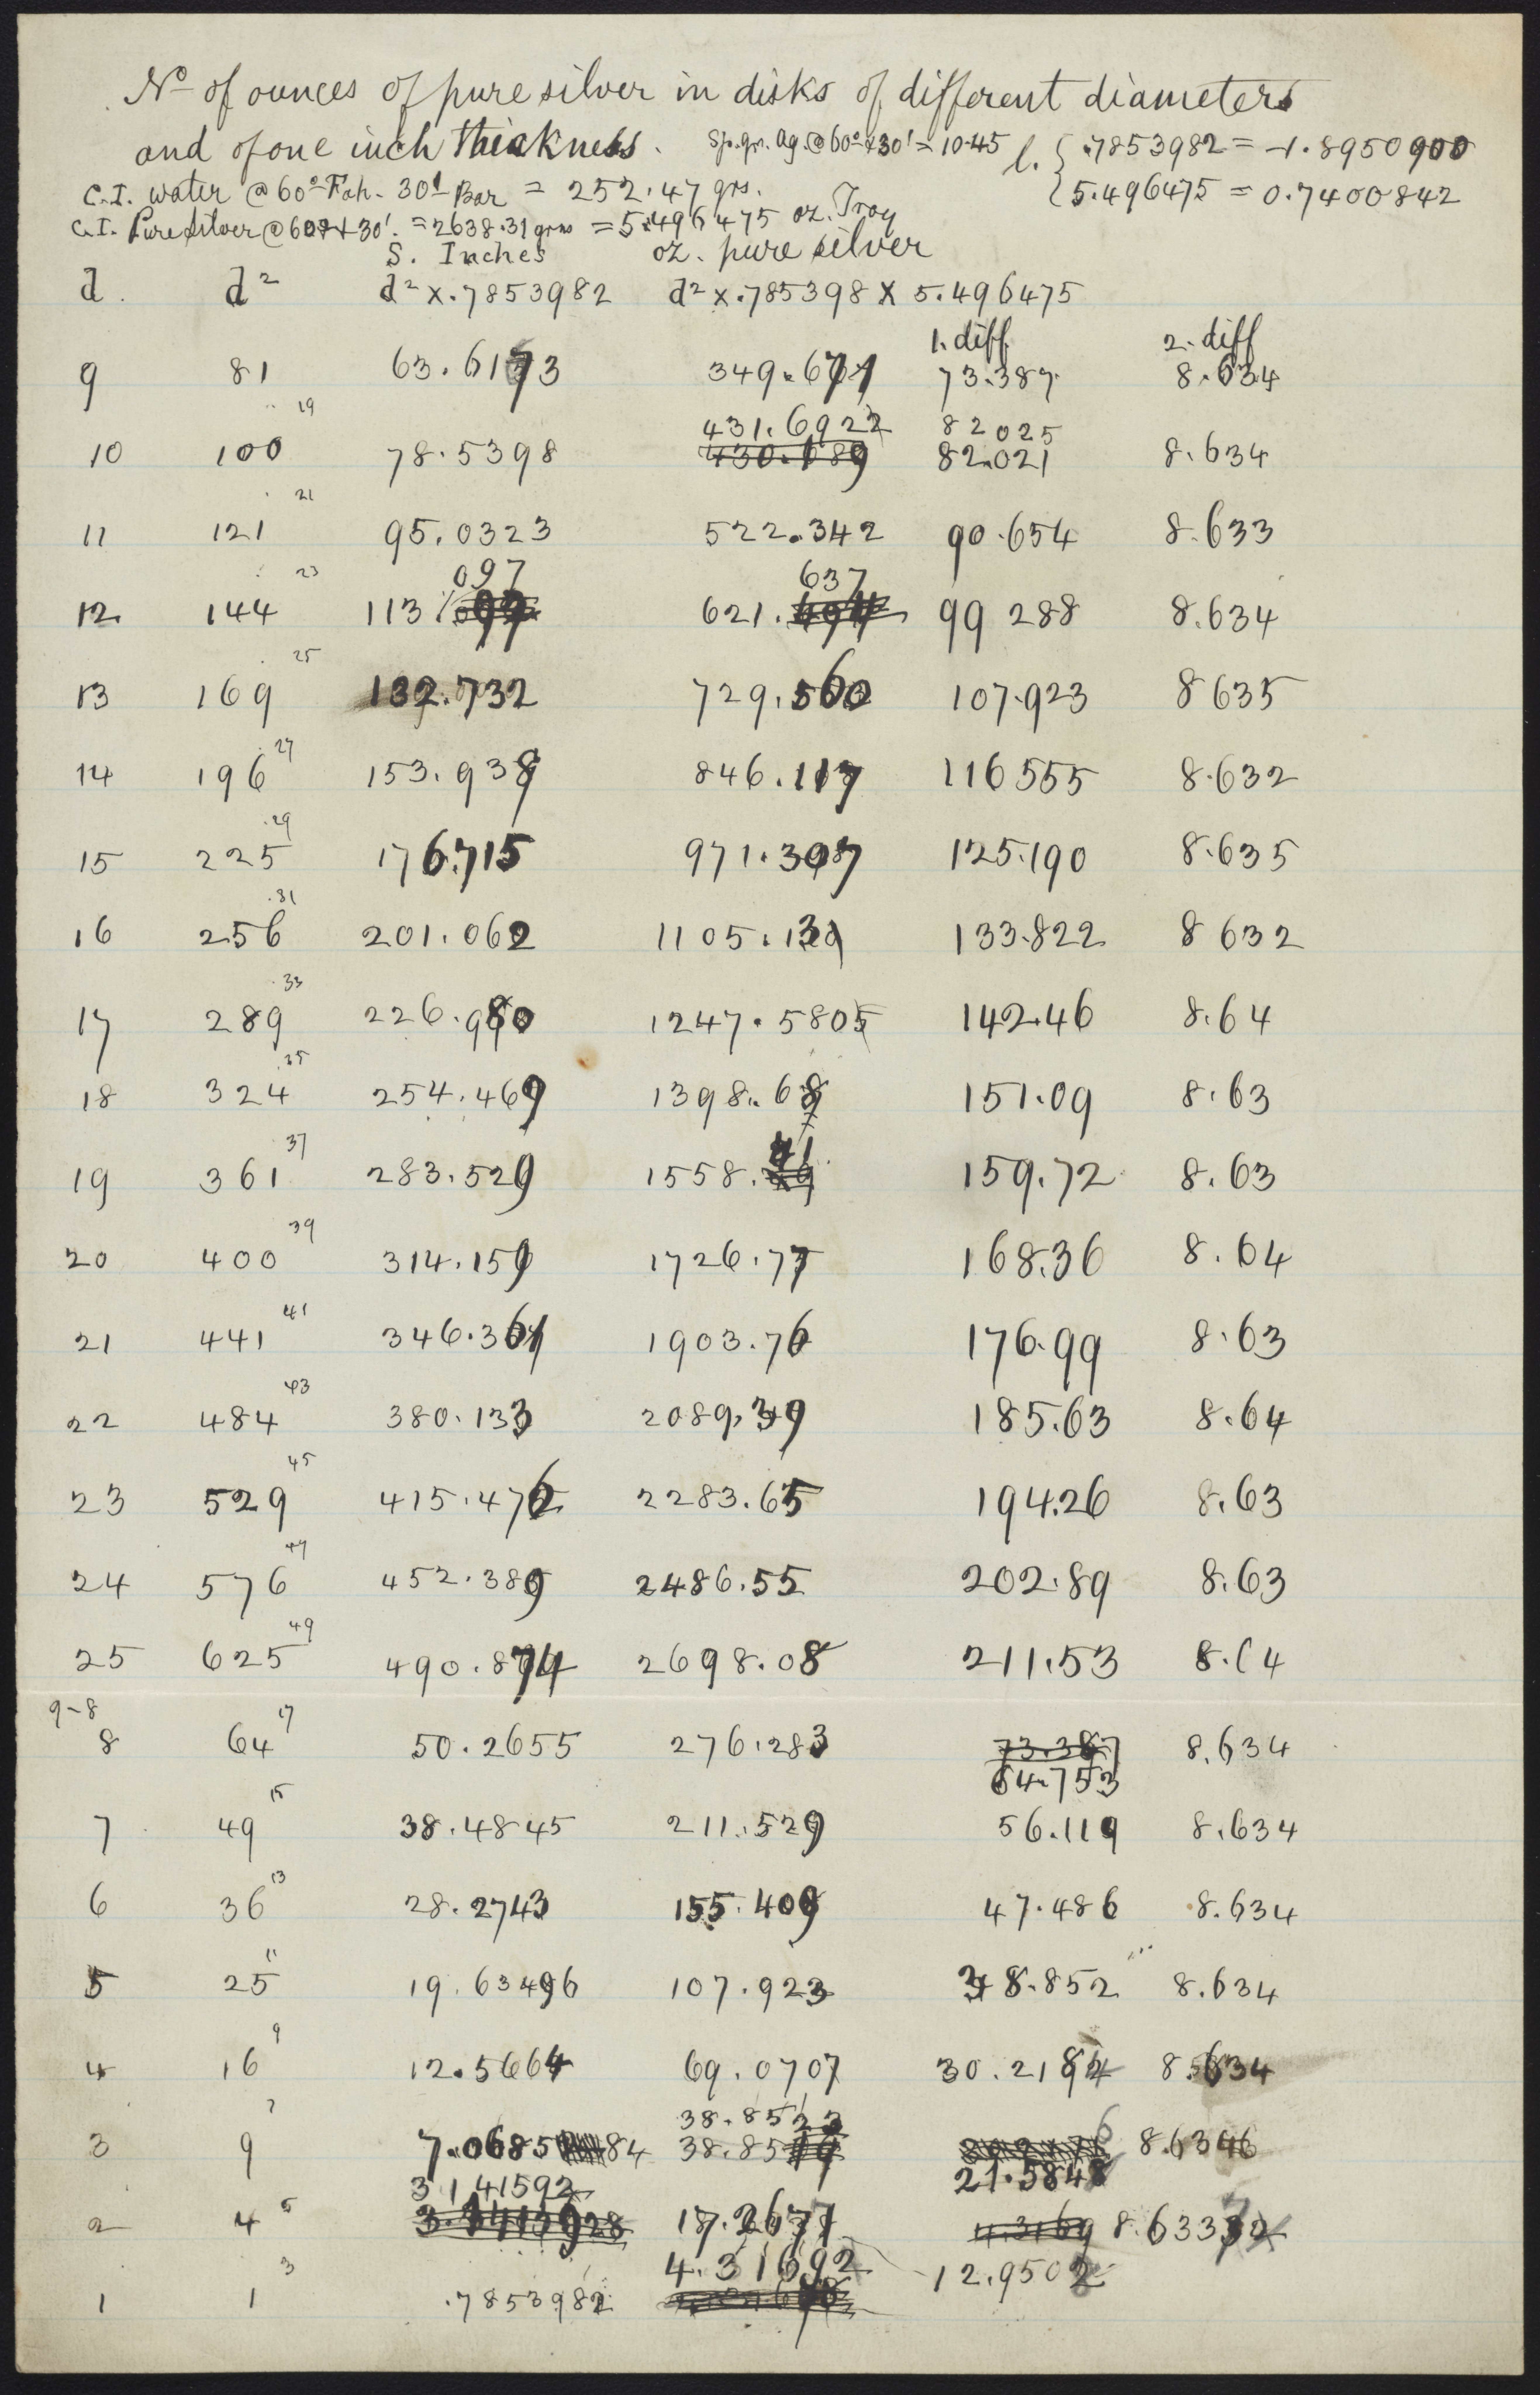 No of ounces of pure silver in disks of different diameters
and of one inch thickness. Sp. gr. Ag. @ 60° & 30' = 10.45 l. { .7853982 = -1.8950900
C.I. water @ 60° Fah - 30' Bar = 252.47 grs. { 5.496475 = 0.7400842
C.I. Pure Silver @ 60° & 30'. = 2638.31 grns = 5.496475 oz. Troy
S. Inches oz. pure silver
d. d² d² x .7853982 d² x .785398 x 5.496475
1. diff 2. diff
9 81 63.6173 349.671 73.387 8.634
19 431.6922 82025
10 100 78.5398 430.689 82.021 8.634
21
11 121 95.0323 522.342 90.654 8.633
23 097 637
12 144 113. 621. 99 288 8.634
25
13 169 132.732 729.560 107.923 8 635
27
14 196 153.938 846.117 116 555 8.632
29
15 225 176.715 971.307 125.190 8.635
31
16 256 201.062 1105.13 133.822 8 632
33
17 289 226.980 1247.5805 142.46 8.64
35
18 324 254.469 1398.68 151.09 8.63
37 41
19 361 283.529 1558. 159.72 8.63
39
20 400 314.159 1726.77 168.36 8.64
41
21 441 346.361 1903.76 176.99 8.63
43
22 484 380.133 2089.39 185.63 8.64
45
23 529 415.476 2283.65 194.26 8.63
47
24 576 452.389 2486.55 202.89 8.63
49
25 625 490.874 2698.08 211.53 8.64
9-8 17
8 64 50.2655 276.283 73.387 8.634
64.753
15
7 49 38.4845 211.529 56.119 8.634
13
6 36 28.2743 155.409 47.486 8.634
11
5 25 19.63496 107.923 38.852 8.634
9
4 16 12.5664 69.0707 30.2184 8.634
7 38.8523
3 9 7.0685 84 38.8519 8.6346
3 141592 21.5848
2 4 5 3.1415928 17.2677 4.3169 8.6333
3 4.31692 12.9502
1 1 .7853982